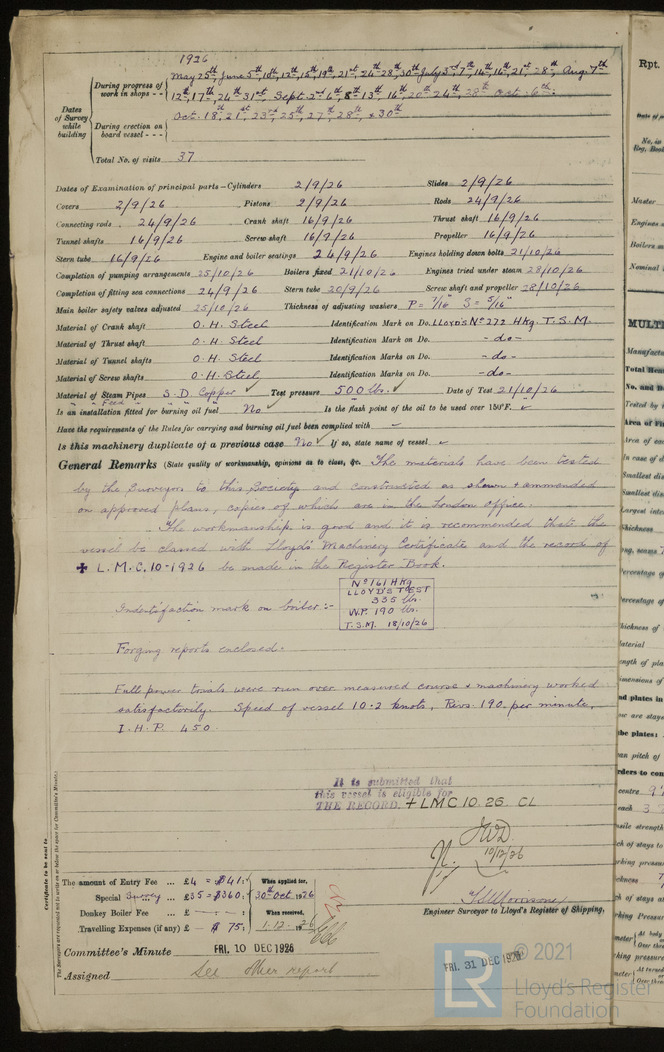 1926
Dates of Survey while building
During progress of work in shops - - May 25th, June 5th, 10th, 12th, 15th, 19th, 21st, 24th 28th, 30th July 3rd, 7th, 14th, 16th, 21st, 28th, Aug. 7th
12th, 17th, 24th 31st, Sept. 2nd 6th, 8th 13th, 16th, 20th 24th, 28th Oct. 6th.
During erection on board vessel - - - Oct. 18th, 21st, 23rd, 25th, 27th, 28th, & 30th
Total No. of visits 37
Dates of Examination of principal parts—Cylinders 2/9/26 Slides 2/9/26
Covers 2/9/26 Pistons 2/9/26 Rods 24/9/26
Connecting rods 24/9/26 Crank shaft 16/9/26 Thrust shaft 16/9/26
Tunnel shafts 16/9/26 Screw shaft 16/9/26 Propeller 16/9/26
Stern tube 16/9/26 Engine and boiler seatings 24/9/26 Engines holding down bolts 21/10/26
Completion of pumping arrangements 25/10/26 Boilers fixed 21/10/26 Engines tried under steam 28/10/26
Completion of fitting sea connections 24/9/26 Stern tube 20/9/26 Screw shaft and propeller 28/10/26
Main boiler safety valves adjusted 25/10/26 Thickness of adjusting washers P = 7/16" S = 5/16"
Material of Crank shaft O. H. Steel Identification Mark on Do. LLOYD'S No 272 HKg. T.S.M.
Material of Thrust shaft O. H. Steel Identification Mark on Do. - do -
Material of Tunnel shafts O. H. Steel Identification Marks on Do. - do -
Material of Screw shafts O. H. Steel Identification Marks on Do. - do -
Material of Steam Pipes S. D. Copper ✓ Test pressure 500 lbs. ✓ Date of Test 21/10/26
" " Feed "
Is an installation fitted for burning oil fuel No ✓ Is the flash point of the oil to be used over 150°F. ✓
Have the requirements of the Rules for carrying and burning oil fuel been complied with -
Is this machinery duplicate of a previous case No ✓ If so, state name of vessel ✓
General Remarks (State quality of workmanship, opinions as to class, &c. The materials have been tested
by the Surveyors to this Society and constructed as shewn & ammended
on approved plans, copies of which are in the London Office.
The workmanship is good and it is recommended that the
vessel be classed with Lloyd's Machinery Certificate and the record of
✠ L.M.C. 10-1926 be made in the Register Book.
Indentifaction mark on boiler :-
No 161 HKg
LLOYD'S TEST
335 lbs.
W.P. 190 lbs.
T.S.M. 18/10/26
Forging reports enclosed.
Full power trials were run over measured course & machinery worked
satisfactorily. Speed of vessel 10.2 knots, Revs. 190 per minute,
I.H.P. 450.
It is submitted that
this vessel is eligible for
THE RECORD. + LMC 10.26. CL
10/12/26
Engineer Surveyor to Lloyd's Register of Shipping.
Certificate to be sent to
The amount of Entry Fee ... £4 = $41: When applied for,
Special Survey ... £35 = $360: 30th Oct. 1926
Donkey Boiler Fee ... £ - : - : When received,
Travelling Expenses (if any) £ - $75: 1.12.1926
Committee's Minute FRI. 10 DEC 1926
Assigned See other report
FRI. 31 DEC 1926
LR
© 2021
Lloyd's Register
Foundation
Rpt.
No. in
Reg. Book
Master
Engines
Boilers
Nominal
MULT
Manufact
Total Hea
No. and D
Tested by
Area of
In case of
Smallest dis
Largest inter